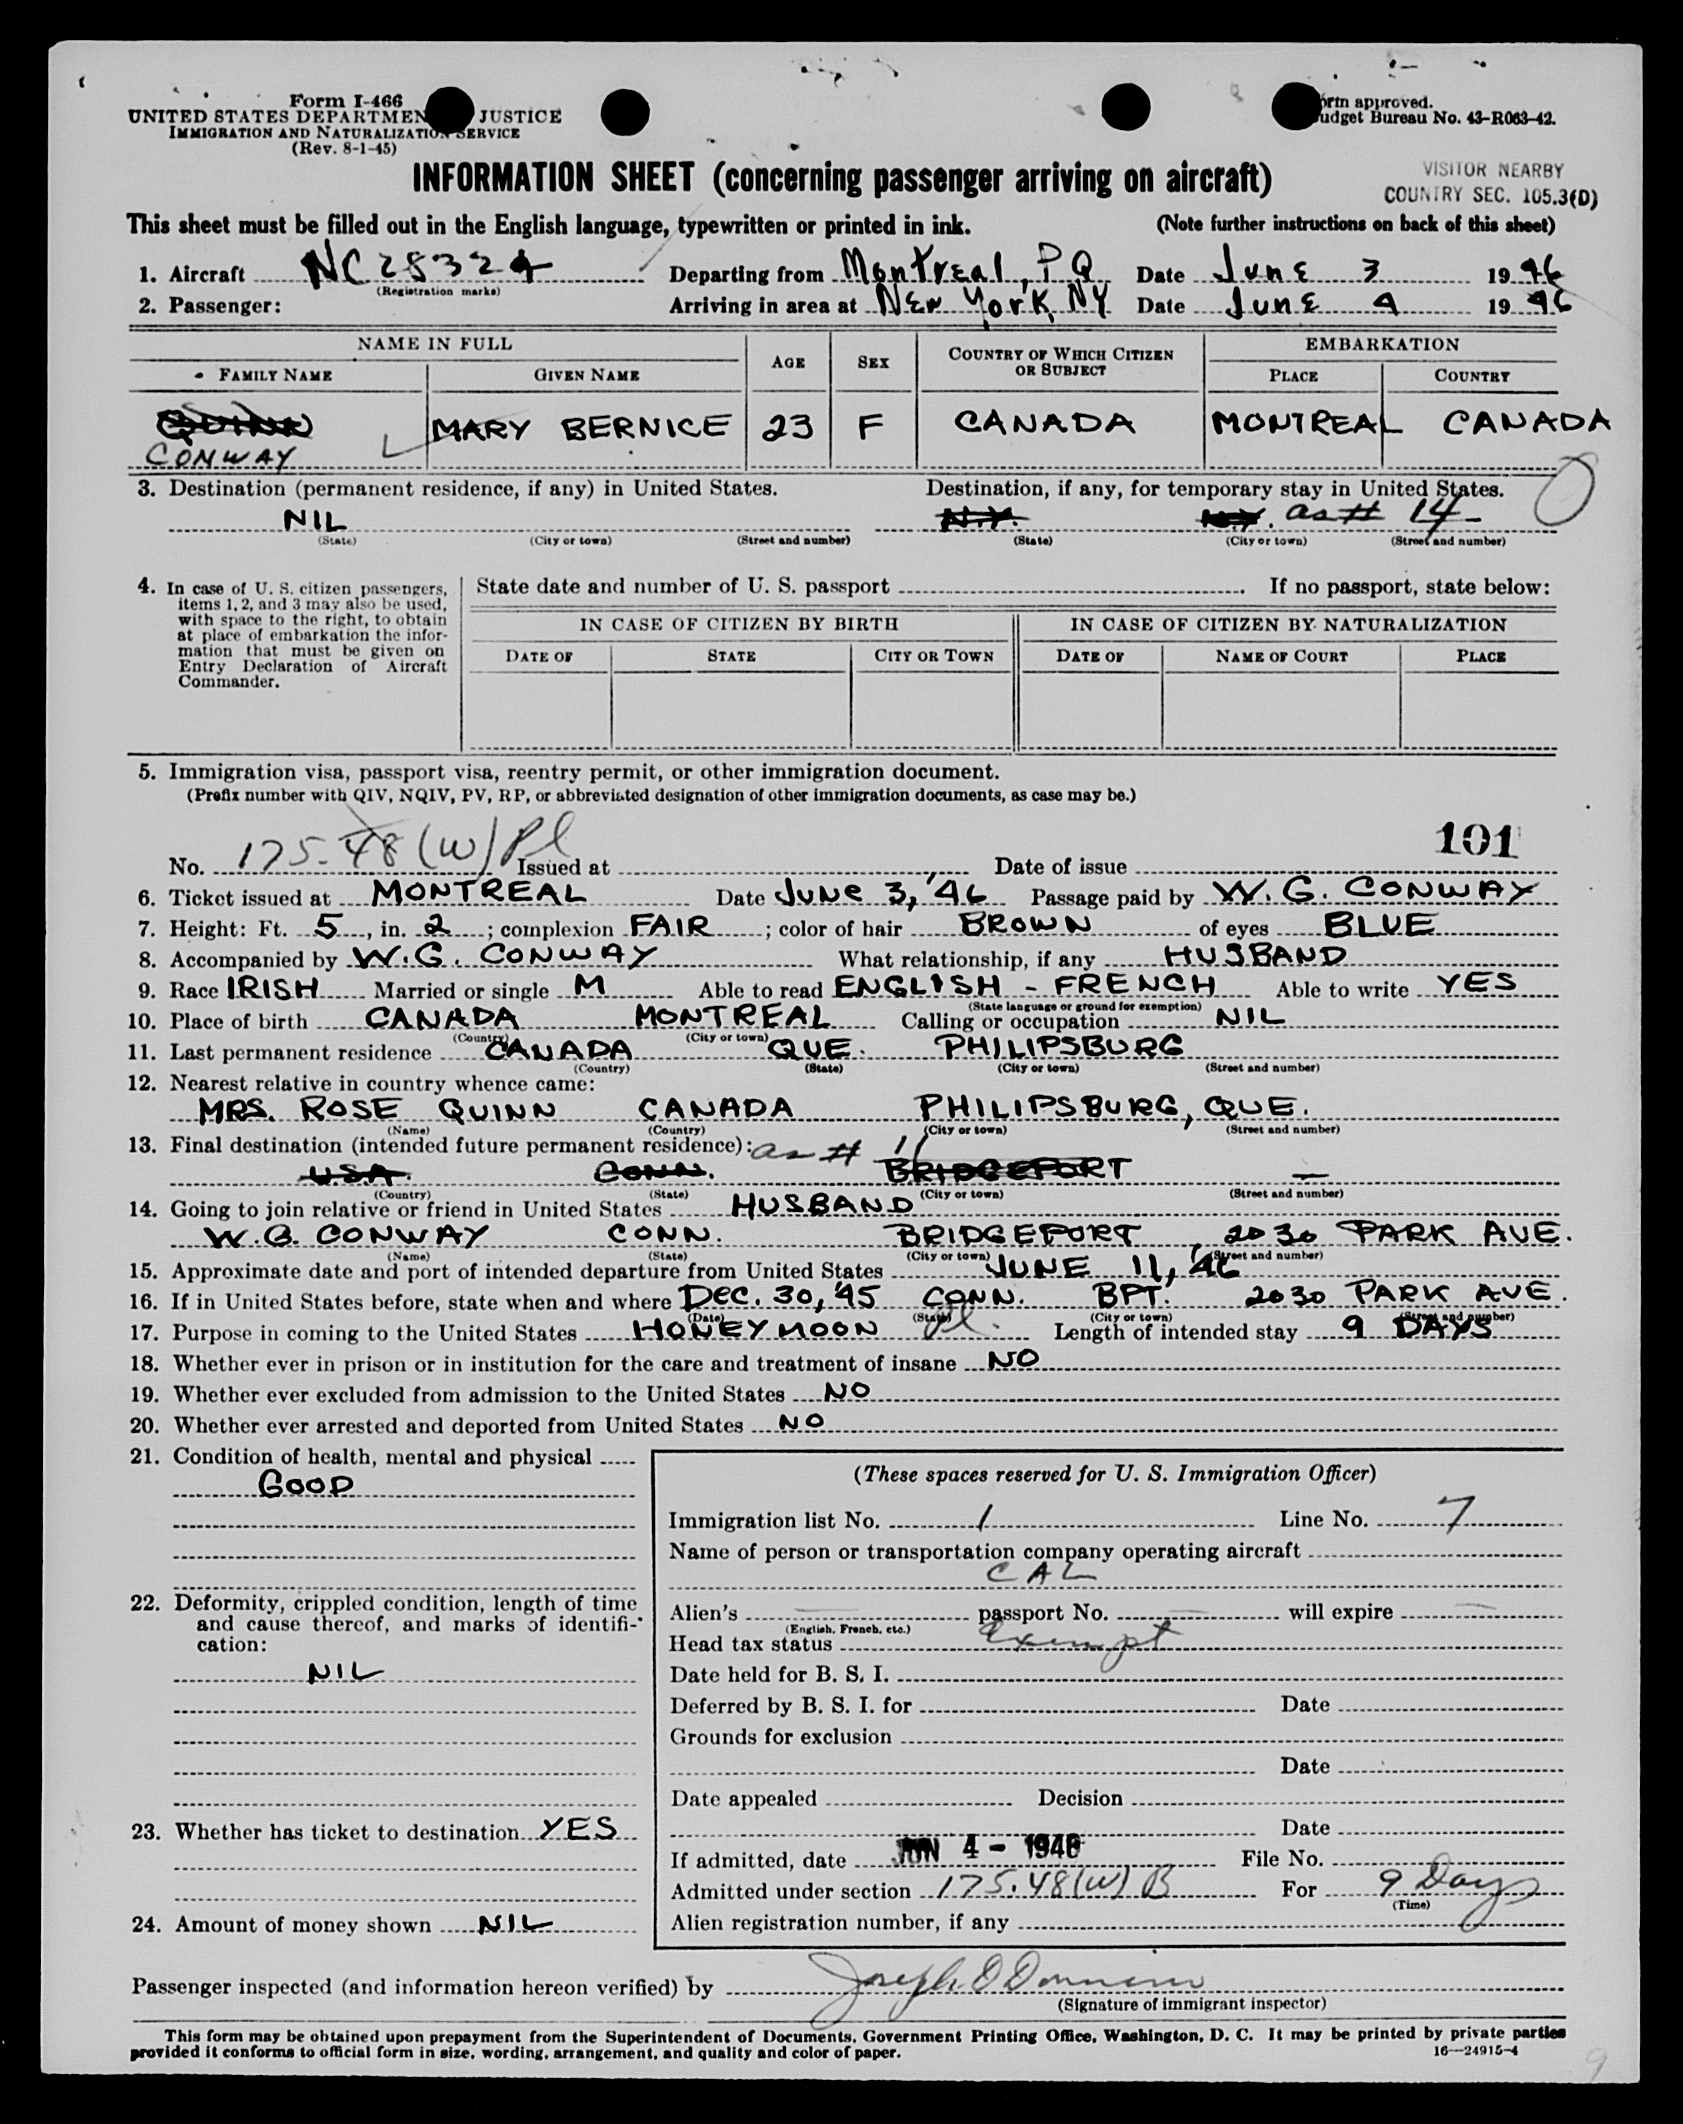 Form I-466
UNITED STATES DEPARTMEN JUSTICE
IMMIGRATION AND NATURALIZATION SERVICE
(Rev. 8-1-45)
orm approved.
udget Bureau No. 43-R063-42.
INFORMATION SHEET (concerning passenger arriving on aircraft)
VISITOR NEARBY
COUNTRY SEC. 105.3(D)
This sheet must be filled out in the English language, typewritten or printed in ink. (Note further instructions on back of this sheet)
1. Aircraft NC28324 Departing from Montreal, PQ Date June 3 1946
(Registration marks)
2. Passenger: Arriving in area at New York, NY Date June 4 1946
NAME IN FULL AGE SEX COUNTRY OF WHICH CITIZEN OR SUBJECT EMBARKATION
FAMILY NAME GIVEN NAME PLACE COUNTRY
QUINN MARY BERNICE 23 F CANADA MONTREAL CANADA
CONWAY
3. Destination (permanent residence, if any) in United States. Destination, if any, for temporary stay in United States.
NIL N.Y. N.Y. as # 14
(State) (City or town) (Street and number) (State) (City or town) (Street and number)
4. In case of U. S. citizen passengers, items 1, 2, and 3 may also be used, with space to the right, to obtain at place of embarkation the information that must be given on Entry Declaration of Aircraft Commander.
State date and number of U. S. passport . If no passport, state below:
IN CASE OF CITIZEN BY BIRTH IN CASE OF CITIZEN BY NATURALIZATION
DATE OF STATE CITY OR TOWN DATE OF NAME OF COURT PLACE
5. Immigration visa, passport visa, reentry permit, or other immigration document.
(Prefix number with QIV, NQIV, PV, RP, or abbreviated designation of other immigration documents, as case may be.)
101
No. 175.48(W) Pl Issued at Date of issue
6. Ticket issued at MONTREAL Date JUNE 3, '46 Passage paid by W. G. CONWAY
7. Height: Ft. 5, in. 2; complexion FAIR; color of hair BROWN of eyes BLUE
8. Accompanied by W. G. CONWAY What relationship, if any HUSBAND
9. Race IRISH Married or single M Able to read ENGLISH - FRENCH Able to write YES
(State language or ground for exemption)
10. Place of birth CANADA MONTREAL Calling or occupation NIL
(Country) (City or town)
11. Last permanent residence CANADA QUE. PHILIPSBURG
(Country) (State) (City or town) (Street and number)
12. Nearest relative in country whence came:
MRS. ROSE QUINN CANADA PHILIPSBURG, QUE.
(Name) (Country) (City or town) (Street and number)
13. Final destination (intended future permanent residence): as # 11
U.S.A. CONN. BRIDGEPORT —
(Country) (State) (City or town) (Street and number)
14. Going to join relative or friend in United States HUSBAND
W. G. CONWAY CONN. BRIDGEPORT, 2030 PARK AVE.
(Name) (State) (City or town) (Street and number)
15. Approximate date and port of intended departure from United States JUNE 11, '46
16. If in United States before, state when and where DEC. 30, '45 CONN. BPT. 2030 PARK AVE.
(Date) (State) (City or town) (Street and number)
17. Purpose in coming to the United States HONEYMOON Pl. Length of intended stay 9 DAYS
18. Whether ever in prison or in institution for the care and treatment of insane NO
19. Whether ever excluded from admission to the United States NO
20. Whether ever arrested and deported from United States NO
21. Condition of health, mental and physical
GOOD
22. Deformity, crippled condition, length of time and cause thereof, and marks of identification:
NIL
23. Whether has ticket to destination YES
24. Amount of money shown NIL
(These spaces reserved for U. S. Immigration Officer)
Immigration list No. 1 Line No. 7
Name of person or transportation company operating aircraft
CAL
Alien's — passport No. — will expire —
(English, French, etc.)
Head tax status Exempt
Date held for B. S. I.
Deferred by B. S. I. for Date
Grounds for exclusion
Date
Date appealed Decision
Date
If admitted, date JUN 4 - 1946 File No.
Admitted under section 175.48(W) B For 9 Days
(Time)
Alien registration number, if any
Passenger inspected (and information hereon verified) by Joseph O'Donnell
(Signature of immigrant inspector)
This form may be obtained upon prepayment from the Superintendent of Documents, Government Printing Office, Washington, D. C. It may be printed by private parties
provided it conforms to official form in size, wording, arrangement, and quality and color of paper.
16—24915-4
9